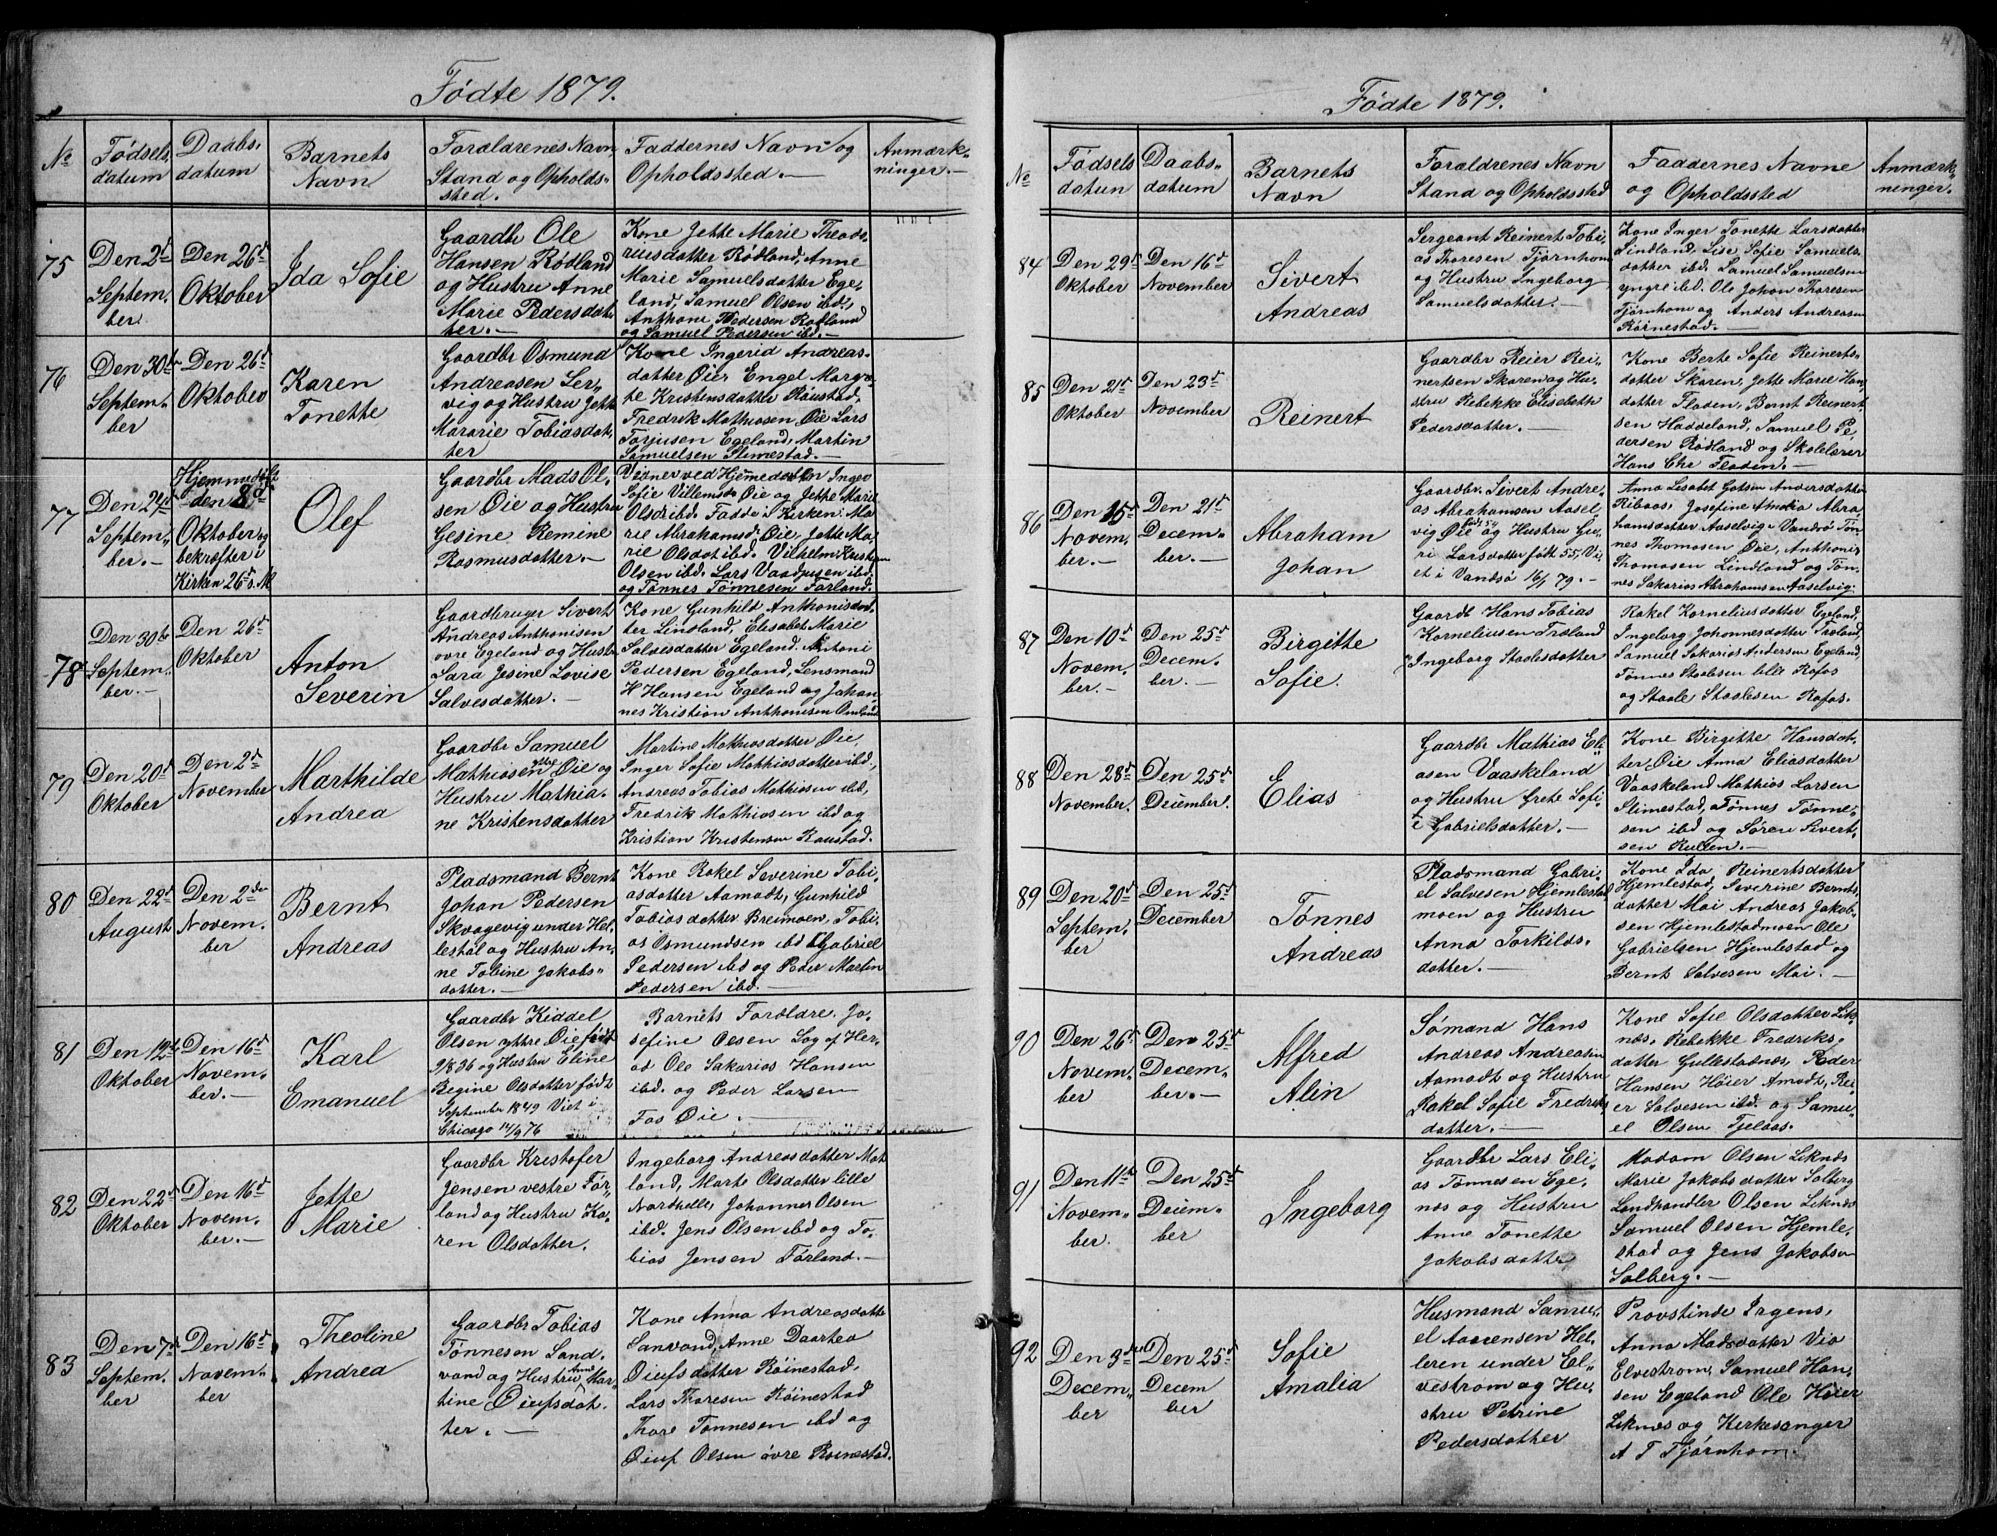 Fødte 1879.
No
Fødsels-
datum
Daabs-
datum
Barnets
Navn
Forældrenes Navn,
Stand og Opholds-
sted.
Faddernes Navn og
Opholdssted.
Anmærk-
ninger.
75
Den 2d
Septem-
ber
Den 26d
Oktober
Ida Sofie
Gaardbr Ole
Hansen Rødland
og Hustru Anne
Marie Pedersdat-
ter.
Kone Jette Marie Theodo-
riusdatter Rødland, Anne
Marie Samuelsdatter Ege-
land, Samuel Olsen ibd.,
Anthone Pedersen Rødland
og Samuel Pedersen ibd.
76
Den 30te
Septem-
ber
Den 26d
Oktober
Karen
Tonette
Gaardbr Osmund
Andreasen Ler-
vig og Hustru Jette
Mararie Tobiasdat-
ter
Kone Ingerid Andreas-
datter Øie, Engel Margre-
te Kristensdatter Røustad,
Fredrik Mathiasen Øie, Lars
Torjusen Egeland, Martin
Samuelsen Slimestad.
77
Den 24d
Septem-
ber.
Hjemmedøbt
den 8d
Oktober og
bekræftet i
Kirken 26d s. M
Olef
Gaardbr Mads Ol-
sen Øie og Hustru
Gesine Remine
Rasmusdatter.
Vidner ved Hjemmedaaben Inger
Sofie Villemsd. Øie og Jette Marie
Olsd. ibd. Fadd. i Kirken: Ma-
rie Abrahamsd. Øie, Jette Ma-
rie Olsdat ibd. Vilhelm Kristian
Olsen ibd. Lars Vaadjusen ibd.
og Tønnes Tønnesen Førland.
78
Den 30te
Septem-
ber.
Den 26d
Oktober
Anton
Severin
Gaardbruger Sivert
Andreas Anthonisen
ovre Egeland og Hustr
Sara Jesine Lovise
Salvesdatter.
Kone Gunhild Anthonisdat-
ter Lindland, Elisabet Marie
Salvesdatter Egeland. Antoni
Pedersen Egeland, Lensmand
H Hansen Egeland og Johan-
nes Kristian Anthonisen Omland
79
Den 20d
Oktober
Den 2d
November
Marthilde
Andrea
Gaardbr Samuel
Mathiasen Øie og
Hustru Mathia-
ne Kristensdatter
Martine Mathiasdatter Øie,
Inger Sofie Mathiasdatter ibd.,
Andreas Tobias Mathiasen ibd,
Fredrik Mathiasen ibd og
Kristian Kristensen Raustad.
80
Den 22d
August
Den 2den
Novem-
ber
Bernt
Andreas
Pladsmand Bernt
Johan Pedersen
Skvagevig under Hel-
lestøl og Hustru An-
ne Tobine Jakobs-
datter.
Kone Rakel Severine Tobi-
asdatter Aamodt, Gunhild
Tobiasdatter Breimoen, Tobi-
as Osmundsen ibd Gabriel
Pedersen ibd og Peder Martin
Pedersen ibd.
81
Den 12te
Oktober
Den 16d
Novem-
ber.
Karl
Emanuel
Gaardbr Kiddel
Olsen ytre Øie født
9/8 36 og Hustru Eline
Regine Olsdatter født
September 1849 Viet i
Chicago 14/9 76
Barnets Forældre. Jo-
sefine Oesen Sog af Her-
ad Ole Sakarias Hansen
ibd. og Peder Larsen
Fos Øie.
82
Den 22d
Oktober
Den 16d
Novem-
ber.
Jette
Marie
Gaardbr Kristofer
Jensen vestre Før-
land og Hustru Ka-
ren Olsdatter.
Ingeborg Andreasdatter Mat-
land, Marte Olsdatter lille
Nordhelle, Johannes Olsen
ibd. Jens Olsen ibd og To-
bias Jensen Førland.
83
Den 7d
Septem-
ber
Den 16d
Novem-
ber
Theoline
Andrea
Gaardbr Tobias
Tønnesen Sand-
vand og Hustru And Mar-
tine Øiufsdat-
ter.
Kone Anna Andreasdatte
Sanvand, Anne Daartea
Øiufsdatter Røinestad,
Lars Thoresen Røinestad
Thore Tønnesen ibd og
Øiuf Olsen øvre Røinestad.
Fødte 1879.
No
Fødsels
datum
Daabs-
datum
Barnets
Navn
Forældrenes Navn
Stand og Opholdssted
Faddernes Navne
og Opholdssted
Anmærk-
ninger.
84
Den 29d
Oktober
Den 16d
November
Sivert
Andreas
Sergeant Reinert Tobi-
as Thoresen Tjørnhom
og Hustru Ingeborg
Samuelsdatter.
Kone Inger Tonette Larsdatter
Lindland, Lise Sofie Samuels-
datter ibd. Samuel Samuelsen
yngre ibd. Ole Johan Thoresen
Tjørnhom og Anders Andreasen
Rørnestad.
85
Den 21d
Oktober
Den 23d
November
Reinert
Gaardbr Reier Rei-
nertsen Skaren og Hu-
stru Rebekke Elisebeth
Pedersdatter.
Kone Berte Sofie Reinerts-
datter Skaren, Jette Marie Han-
datter Fladen, Bernt Reinert-
sen Haddeland, Samuel Pe-
dersen Rødland og Skolelærer
Hans Chr Fladen.
86
Den 15d
Novem-
ber.
Den 21d
Decem-
ber.
Abraham
Johan
Gaardbr. Sivert Andre-
as Abrahamsen Aasel-
vig Øie og Hustru Gu-
ri Larsdatter født 55, Vi-
et i Vandsø 16/1 79.
Anna Lisabet Gotsen Andersdatter
Ribaas, Josefine Amalia Abra-
hamsdatter Aaselvig, Vandsø Tøn-
nes Thomasen Øie, Anthonis
Thomasen Lindland og Tøn-
nes Sakarias Abrahamsen Aaselvig.
87
Den 10d
Novem-
ber.
Den 25d
Decem-
ber.
Birgitte
Sofie.
Gaardb Hans Tobias
Korneliusen Træland
Ingeborg Staalesdatter
Rakel Korneliusdatter Egeland,
Ingeborg Johannesdatter Træland,
Samuel Sakarias Andersen Egeland,
Tønnes Staalesen lille Rafos
og Staale Staalesen Rafos.
88
Den 28d
November.
Den 25d
December.
Elias
Gaardbr Mathias Eli-
asen Vaaskeland
og Hustru Grete Sofi-
e Gabrielsdatter.
Kone Birgitte Hansdat-
ter Øie Anna Eliasdatter
Vaaskeland Mathias Larsen
Slimestad, Tønnes Tønne-
sen ibd og Søren Sivert-
sen Kullen.
89
Den 20d
Septem-
ber
Den 25d
December
Tønnes
Andreas
Pladsmand Gabri-
el Salvesen Hjemlestad
moen og Hustru
Anna Torkilds-
datter.
Kone Ida Reinertsdatter
Hjemlestad, Severine Bernts-
datter Moi Andreas Jakob-
sen Hjemlestadmoen Ole
Gabrielsen Hjemlestad og
Bernt Salvesen Moi.
90
Den 26d
Novem-
ber
Den 25d
Decem-
ber.
Alfred
Alin
Sømand Hans
Andreas Andreasen
Aamodt og Hustru
Rakel Sofie Fredriks
datter.
Kone Sofie Olsdatter Lik-
næs, Rebekke Fredriks-
datter Gullestadnæs, Peder
Hansen Høier Amodt, Rei-
er Salvesen ibd. og Samu-
el Olsen Tjelaas.
91
Den 11te
Novem-
ber.
Den 25d
Decem-
ber
Ingeborg
Gaardbr Lars Eli-
as Tønnesen Ege-
næs og Hustru
Anne Tonette
Jakobsdatter
Madam Olsen Liknes
Marie Jakobsdatter Solberg
Landhandler Olsen Liknes
Samuel Olsen Hjemle-
stad og Jens Jakobsen
Solberg.
92
Den 3die
Decem-
ber
Den 25d
Decem
ber
Sofie
Amalia
Husmand Samu-
el Aanensen Hel-
leren under El-
vestrom og Hu-
stru Petrine
Pedersdatter
Provstinde Irgens,
Anna Madsdatter Vio
Elvestrom, Samuel Han-
sen Egeland Ole Høier
Liknes og Kirkesanger
A T Tjørnhom.